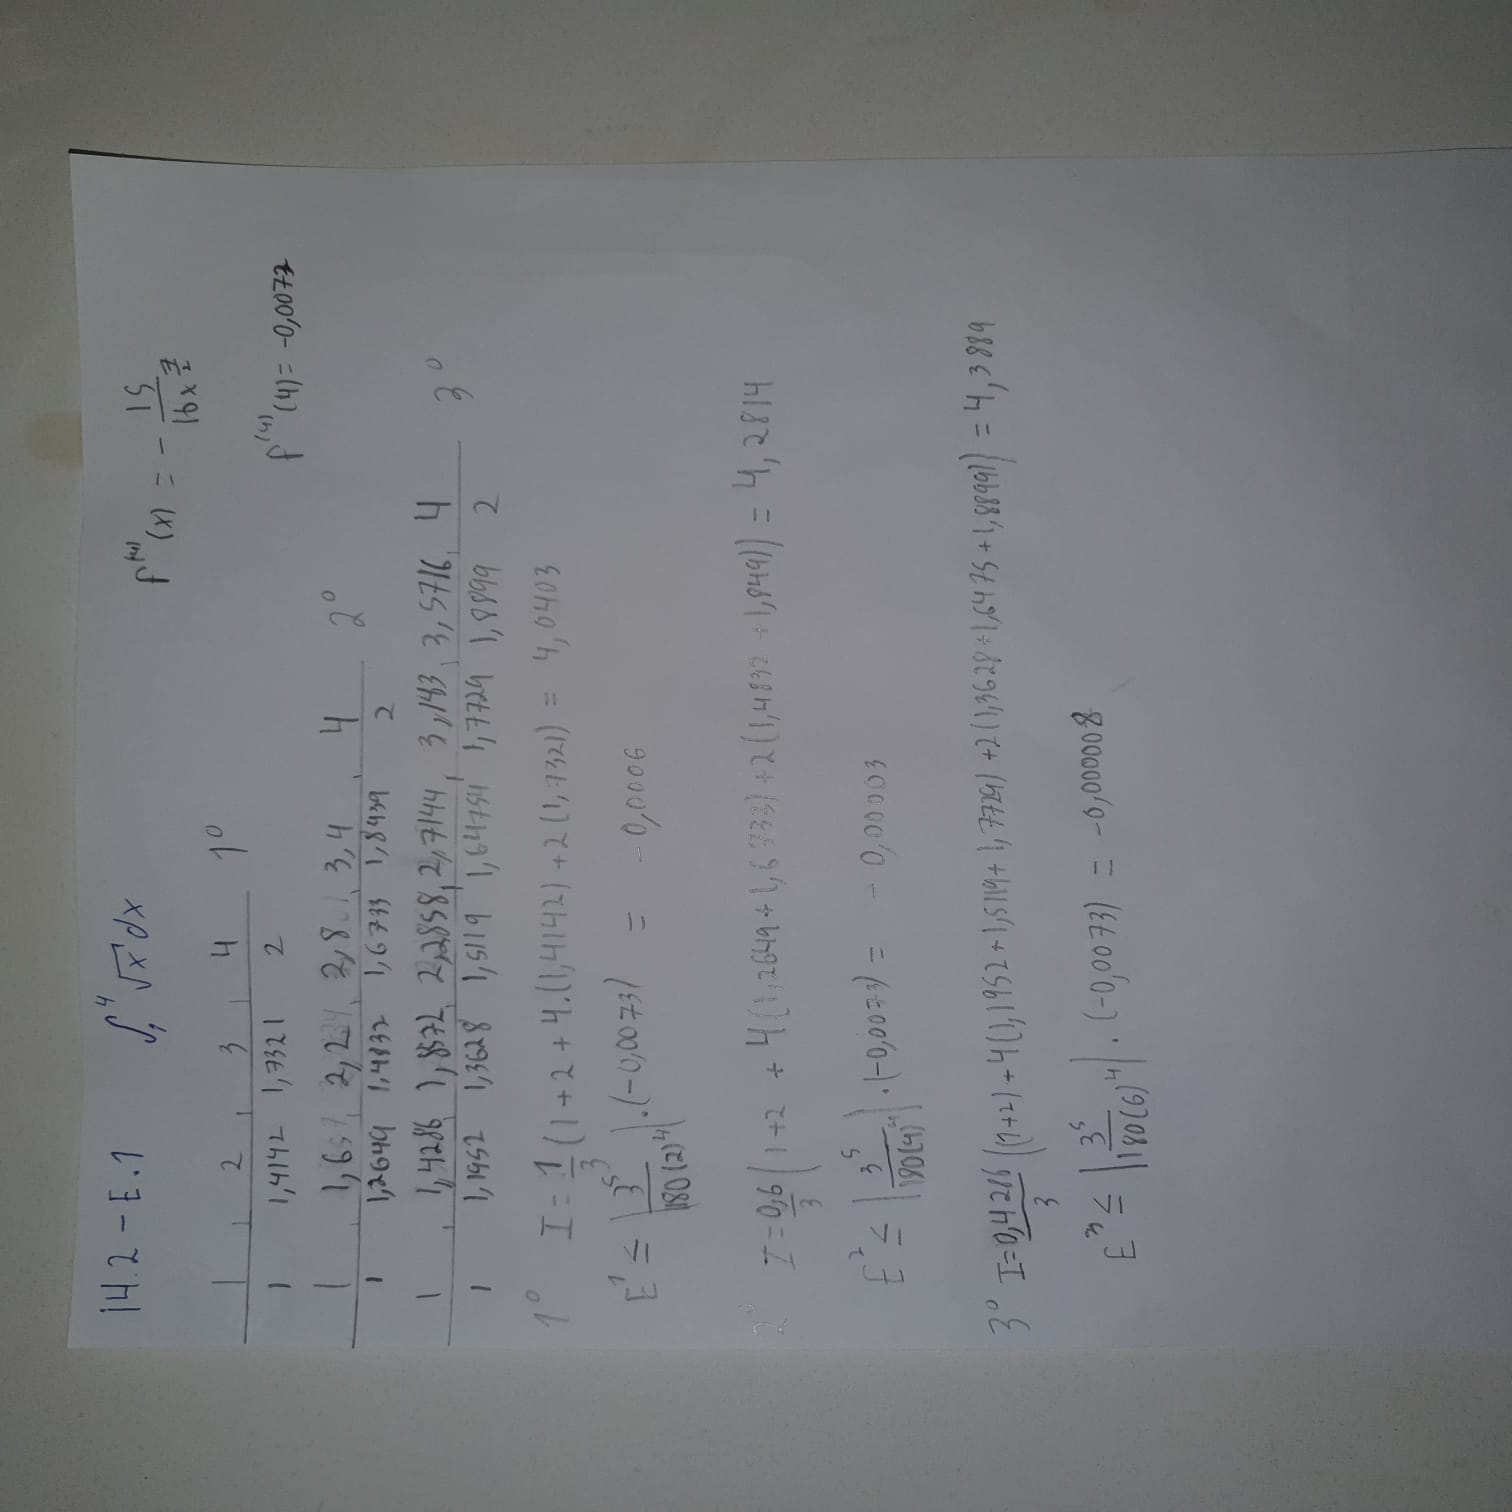 14.2 - E.1 ∫₁⁴ √x dx
f⁽⁴⁾(x) = - 15/16x^(7/2)
1 2 3 4 1º
1 1,4142 1,7321 2
f⁽⁴⁾(4) = -0,0073
1 1,6 2,2 2,8 3,4 4 2º
1 1,2649 1,4832 1,6733 1,8439 2
1 1,4286 1,8572 2,2858 2,7144 3,143 3,5716 4 3º
1 1,1952 1,3628 1,5119 1,64754 1,7729 1,8899 2
1º I = 1/3 (1+2+4.(1,4142)+2(1,7321)) = 4,0403
E¹ ≤ |3⁵/180(2)⁴|.(-0,0073) = -0,0006
2º I = 0,6/3 (1+2 + 4(1,2649+1,6733)+2(1,4832+1,849)) = 4,2814
E² ≤ |3⁵/180(4)⁴|.(-0,0073) = -0,00003
3º I = 0,4286/3 ((1+2)+4(1,1952+1,5119+1,7729)+2(1,3628+1,6475+1,8899)) = 4,3889
E³ ≤ |3⁵/180(6)⁴|.(-0,0073) = -0,000008